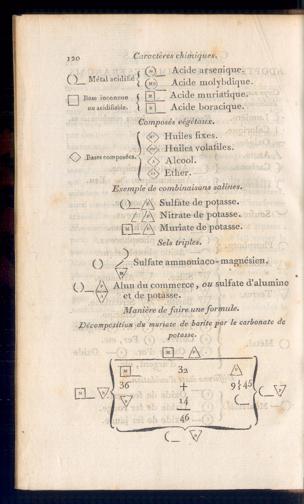 120
Caractères chimiques.
Métal acidifié
Acide arsenique.
Acide molybdique.
Base inconnue ou acidifiable.
Acide muriatique.
Acide boracique.
Composés végétaux.
Bases composées.
Huiles fixes.
Huiles volatiles.
Alcool.
Ether.
Exemple de combinaisons salines.
Sulfate de potasse.
Nitrate de potasse.
Muriate de potasse.
Sels triples.
Sulfate ammoniaco-magnésien.
Alun du commerce, ou sulfate d'alumine
et de potasse.
Manière de faire une formule.
Décomposition du muriate de barite par le carbonate de
potasse.
32
36 + 9 } 45
14
46